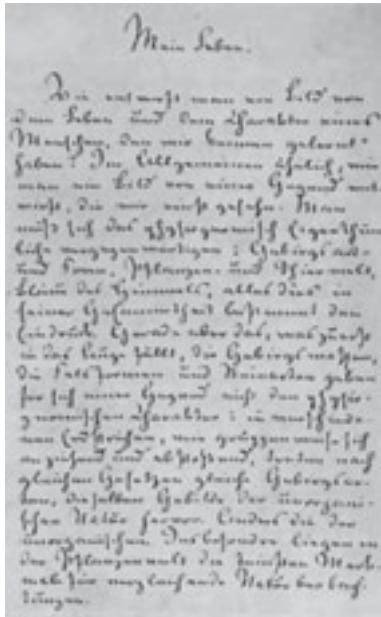 Mein Leben.
Wie entwirft man ein Bild von
dem Leben und dem Charakter eines
Menschen, den wir kennen gelernt
haben? Im Allgemeinen ähnlich, wie
man ein Bild von einer Gegend ent-
wirft, die wir einst gesehn. Man
muß sich das physiognomisch Eigenthüm-
liche vergegenwärtigen: Gebirgsart
und Form, Pflanzen- und Thierwelt,
Bläue des Himmels, alles dies in
seiner Gesammtheit bestimmt den
Eindruck. Gerade aber das, was zuerst
in das Auge fällt, die Gebirgsmassen,
die Felsformen und Steinarten geben
für sich einer Gegend nicht den physio-
gnomischen Charakter: in verschiede-
nen Erdstrichen, wie gruppenweise sich
anziehend und abstoßend, treten nach
gleichen Gesetzen gleiche Gebirgsar-
ten, dieselben Gebilde der unorgani-
schen Natur hervor. Anders die der
unorganischen. Insbesondere liegen in
der Pflanzenwelt die feinsten Merk-
male für vergleichende Naturbeobach-
tungen.